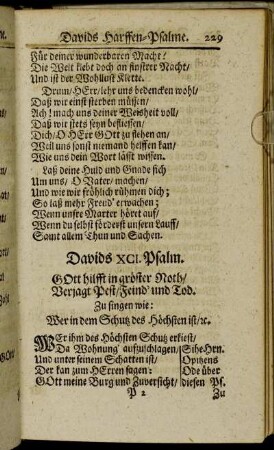 Davids Harffen-Psalme. 229
Für deiner wunderbaren Macht?
Die Welt liebt doch an finstrer Nacht/
Und ist der Wohllust Klette.
Drum/HErr/lehr uns bedencken wohl/
Daß wir einst sterben müßen/
Ach! mach uns deiner Weisheit voll/
Daß wir stets seyn beflissen/
Dich/O HErr GOtt zu flehen an/
Weil uns sonst niemand helffen kan/
Wie uns dein Wort läßt wissen.
Laß deine Huld und Gnade sich
Um uns/ O Vater/ machen/
Und wie wir frölich rühmen dich;
So laß mehr Freud' erwachen;
Wenn unsre Marter höret auf/
Wenn du selbst förderst unsern Lauff/
Samt allem Thun und Sachen.
Davids XCI. Psalm.
GOtt hilfft in gröster Noth/
Verjagt Pest/Feind' und Tod.
Zu singen wie:
Wer in dem Schutz des Höchsten ist/ꝛc.
WEr ihm des Höchsten Schutz erkiest/
Da Wohnung aufzuschlagen/ Sihe Hrn.
Und unter seinem Schatten ist/ Opitzens
Der kan zum HErren sagen: Ode über
GOtt meine Burg und Zuversicht/ diesen Ps.
P 2 Zu